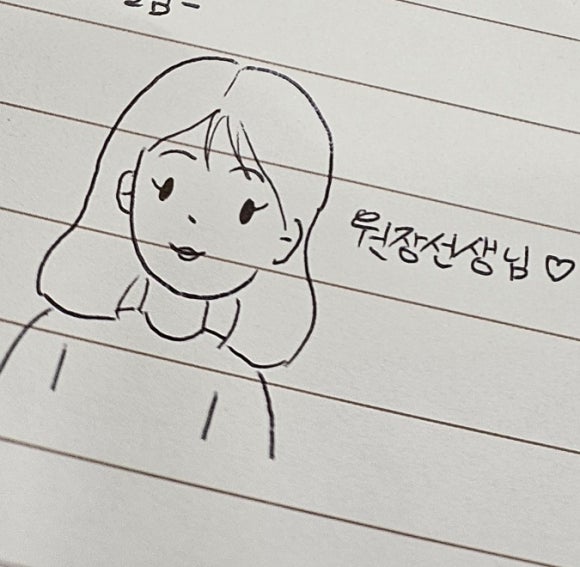 원장선생님♡